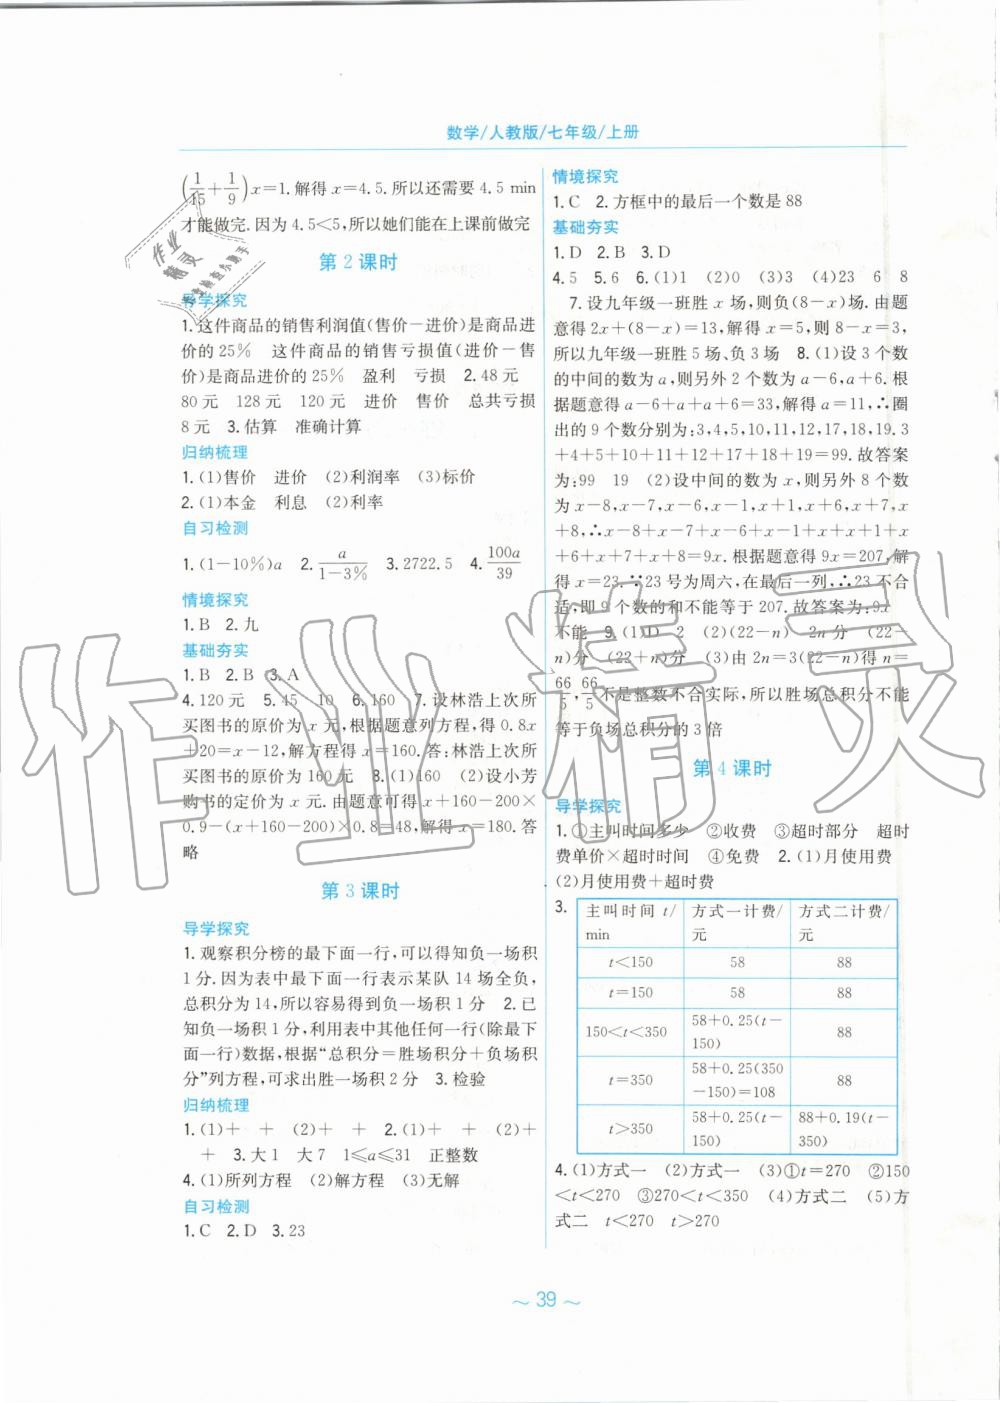 数学/人教版/七年级/上册
(1/15+1/9)x=1.解得x=4.5.所以还需要4.5 min
才能做完.因为4.5<5,所以她们能在上课前做完
第2课时
导学探究
1.这件商品的销售利润值(售价-进价)是商品进
价的25% 这件商品的销售亏损值(进价-售
价)是商品进价的25% 盈利 亏损 2.48元
80元 128元 120元 进价 售价 总共亏损
8元 3.估算 准确计算
归纳梳理
1.(1)售价 进价 (2)利润率 (3)标价
2.(1)本金 利息 (2)利率
自习检测
1.(1-10%)a 2.a/(1-3%) 3.2722.5 4.100a/39
情境探究
1.B 2.九
基础夯实
1.B 2.B 3.A
4.120元 5.45 10 6.160 7.设林浩上次所
买图书的原价为x元,根据题意列方程,得0.8x
+20=x-12,解方程得x=160.答:林浩上次所
买图书的原价为160元 8.(1)160 (2)设小芳
购书的定价为x元.由题意可得(x+160-200)×
0.9-(x+160-200)×0.8=48,解得x=180.答
略
第3课时
导学探究
1.观察积分榜的最下面一行,可以得知负一场积
1分.因为表中最下面一行表示某队14场全负,
总积分为14,所以容易得到负一场积1分 2.已
知负一场积1分,利用表中其他任何一行(除最下
面一行)数据,根据“总积分=胜场积分+负场积
分”列方程,可求出胜一场积2分 3.检验
归纳梳理
1.(1)+ + (2)+ + 2.(1)+ + (2)+
+ 3.大1 大7 1≤a≤31 正整数
4.(1)所列方程 (2)解方程 (3)无解
自习检测
1.C 2.D 3.23
情境探究
1.C 2.方框中的最后一个数是88
基础夯实
1.D 2.B 3.D
4.5 5.6 6.(1)1 (2)0 (3)3 (4)23 6 8
7.设九年级一班胜x场,则负(8-x)场.由题
意得2x+(8-x)=13,解得x=5,则8-x=3,
所以九年级一班胜5场、负3场 8.(1)设3个数
的中间的数为a,则另外2个数为a-6,a+6.根
据题意得a-6+a+a+6=33,解得a=11,∴圈
出的9个数分别为:3,4,5,10,11,12,17,18,19.3
+4+5+10+11+12+17+18+19=99.故答案
为:99 19 (2)设中间的数为x,则另外8个数
为x-8,x-7,x-6,x-1,x+1,x+6,x+7,x
+8,∴x-8+x-7+x-6+x-1+x+x+1+x
+6+x+7+x+8=9x.根据题意得9x=207,解
得x=23.∵23号为周六,在最后一列,∴23不合
适,即9个数的和不能等于207.故答案为:9x
不能 9.(1)1 2 (2)(22-n) 2n分 (22-
n)分 (22+n)分 (3)由2n=3(22-n)得n=
66/5,66/5不是整数不合实际,所以胜场总积分不能
等于负场总积分的3倍
第4课时
导学探究
1.①主叫时间多少 ②收费 ③超时部分 超时
费单价×超时时间 ④免费 2.(1)月使用费
(2)月使用费+超时费
3.
主叫时间t/min 方式一计费/元 方式二计费/元
t<150 58 88
t=150 58 88
150<t<350 58+0.25(t-150) 88
t=350 58+0.25(350-150)=108 88
t>350 58+0.25(t-150) 88+0.19(t-350)
4.(1)方式一 (2)方式一 (3)①t=270 ②150
<t<270 ③270<t<350 (4)方式二 (5)方
式二 t<270 t>270
~ 39 ~
作业精灵